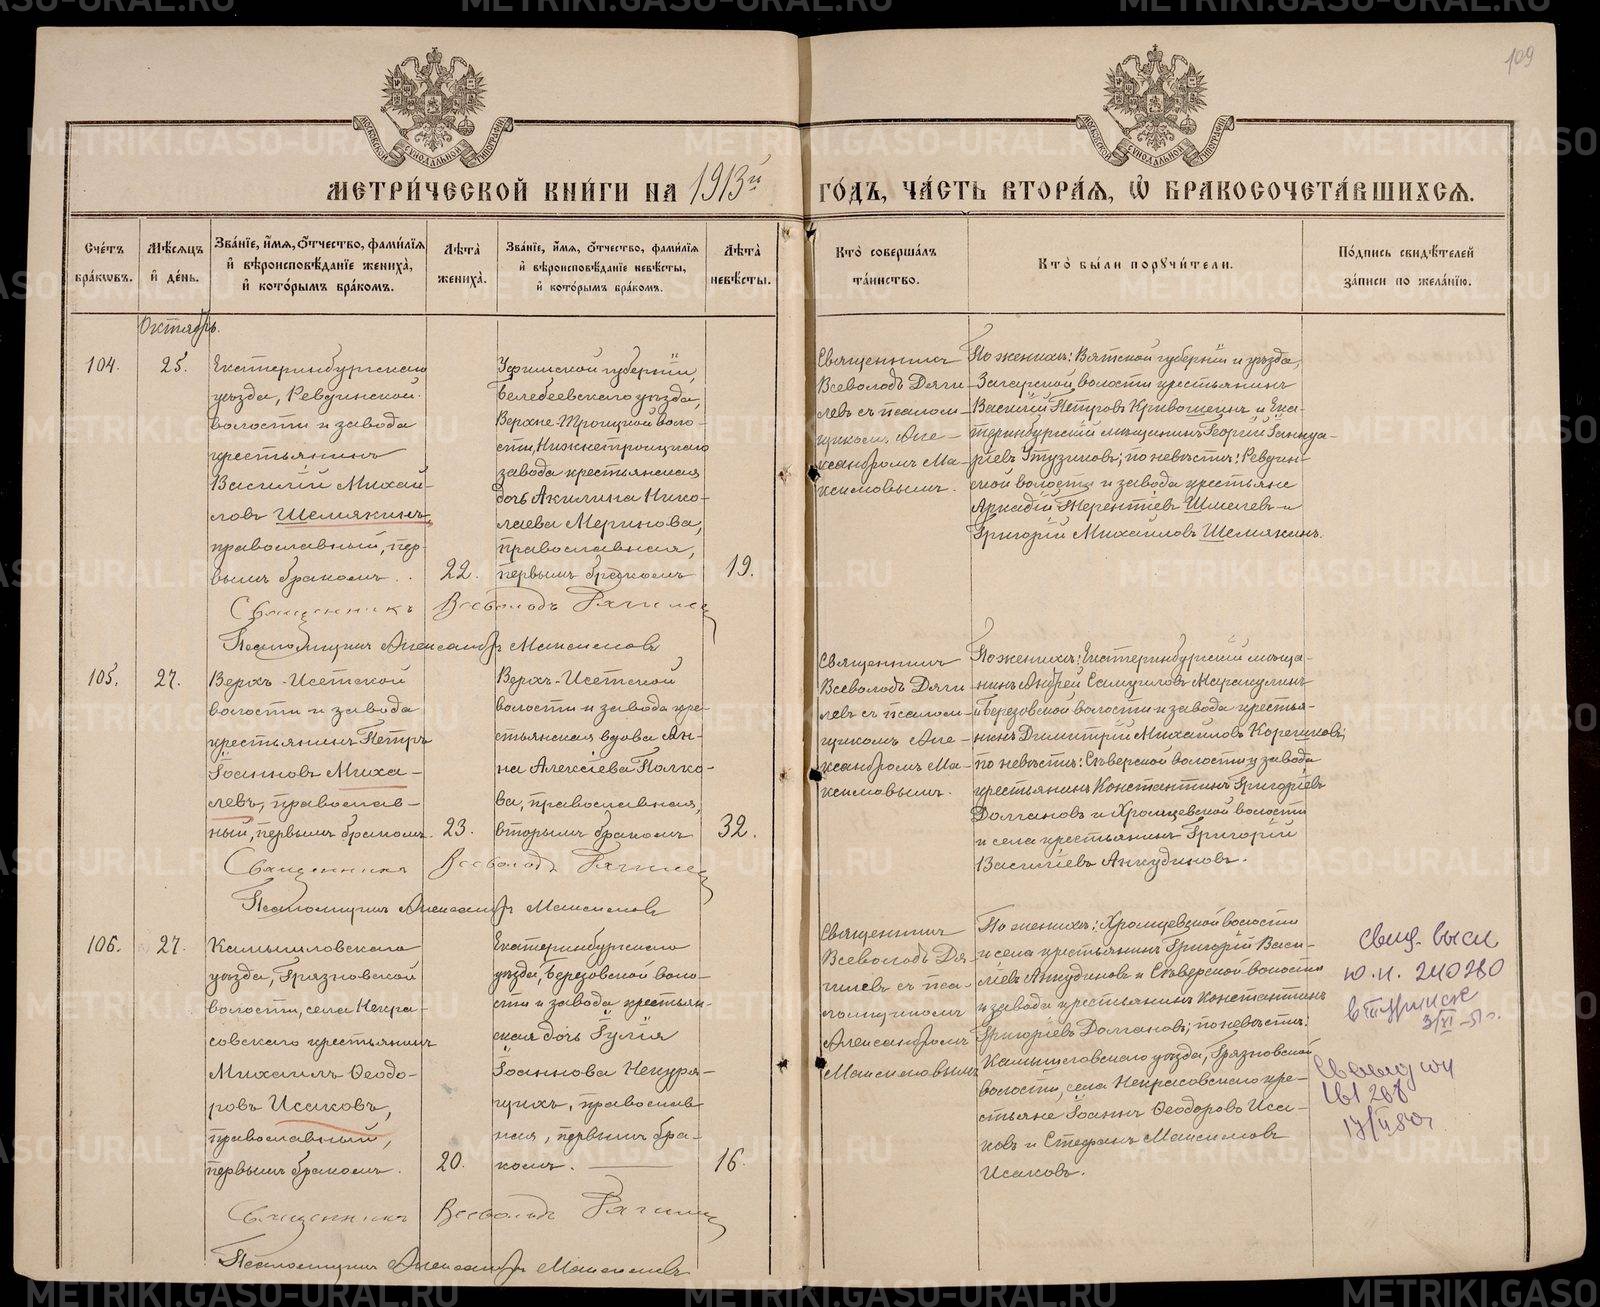 109
МОСКОВСКОЙ СѴНОДАЛЬНОЙ ТИПОГРАФІИ
МОСКОВСКОЙ СѴНОДАЛЬНОЙ ТИПОГРАФІИ
МЕТРИ́ЧЕСКОЙ КНИ́ГИ НА 1913й ГО́ДЪ, ЧА́СТЬ ВТОРА́Я, Ѡ БРАКОСОЧЕТА́ВШИХСЯ.
Сче́тъ бра́кѡвъ.
Мѣ́сяцъ и҆ де́нь.
Зва́нїе, и҆́мя, ѻ҆́тчество, фами́лїя и҆ вѣроисповѣ́данїе жениха̀, и҆ кото́рымъ бра́комъ.
Лѣ́та жениха̀.
Зва́нїе, и҆́мя, ѻ҆́тчество, фами́лїя и҆ вѣроисповѣ́данїе невѣ́сты, и҆ кото́рымъ бра́комъ.
Лѣ́та невѣ́сты.
Кто̀ соверша́лъ та́инство.
Кто̀ бы́ли поручи́тели.
По́дпись свидѣ́телей за́писи по жела́нїю.
Октябрь.
104.
25.
Екатеринбургскаго
уѣзда, Ревдинской
волости и завода
крестьянинъ
Василій Михай-
ловъ Шемякинъ,
православный, пер-
вымъ бракомъ.
22.
Уфимской губерніи,
Белебеевскаго уѣзда,
Верхне-Троицкой воло-
сти, Нижнетроицкаго
завода крестьянская
дочь Акилина Нико-
лаева Меринова,
православная,
первымъ бракомъ
19.
Священникъ
Всеволодъ Дяги-
левъ съ псалом-
щикомъ Але-
ксандромъ Ма-
ксимовымъ.
По женихѣ: Вятской губерніи и уѣзда,
Загарской волости крестьянинъ
Василій Петровъ Кривошеинъ и Ека-
теринбургскій мѣщанинъ Георгій Ганна-
ріевъ Утузиковъ; по невѣстѣ: Ревдин-
ской волости и завода крестьяне
Аркадій Терентіевъ Шмелевъ и
Григорій Михаиловъ Шемякинъ.
Священникъ Всеволодъ Дягилевъ
Псаломщикъ Александръ Максимовъ
105.
27.
Верхъ-Исетской
волости и завода
крестьянинъ Петръ
Іоанновъ Миха-
левъ, православ-
ный, первымъ бракомъ.
23.
Верхъ-Исетской
волости и завода кре-
стьянская вдова Ан-
на Алексіева Полко-
ва, православная,
вторымъ бракомъ
32.
Священникъ
Всеволодъ Дяги-
левъ съ псалом-
щикомъ Але-
ксандромъ Ма-
ксимовымъ.
По женихѣ: Екатеринбургскій мѣща-
нинъ Андрей Самуиловъ Маракулинъ
и Березовской волости и завода крестья-
нинъ Димитрій Михаиловъ Корепиковъ;
по невѣстѣ: Сѣверской волости и завода
крестьянинъ Константинъ Григоріевъ
Долгановъ и Хромцевской волости
и села крестьянинъ Григорій
Василіевъ Анкудиновъ.
Священникъ Всеволодъ Дягилевъ
Псаломщикъ Александръ Максимовъ
106.
27.
Камышловскаго
уѣзда, Грязновской
волости, села Некра-
совскаго крестьянинъ
Михаилъ Ѳеодо-
ровъ Исаковъ,
православный,
первымъ бракомъ.
20.
Екатеринбургскаго
уѣзда, Березовской воло-
сти и завода крестьян-
ская дочь Іулія
Іоаннова Некуря-
щихъ, православ-
ная, первымъ бра-
комъ.
16.
Священникъ
Всеволодъ Дя-
гилевъ съ пса-
ломщикомъ
Александромъ
Максимовымъ
По женихѣ: Хромцевской волости
и села крестьянинъ Григорій Васи-
ліевъ Анкудиновъ и Сѣверской волости
и завода крестьянинъ Константинъ
Григоріевъ Долгановъ; по невѣстѣ:
Камышловскаго уѣзда, Грязновской
волости, села Некрасовскаго кре-
стьяне Іоаннъ Ѳеодоровъ Иса-
ковъ и Стефанъ Максимовъ
Исаковъ.
Свид. высл
ю.н. 240280
Священникъ Всеволодъ Дягилевъ
Псаломщикъ Александръ Максимовъ
METRIKI.GASO-URAL.RU